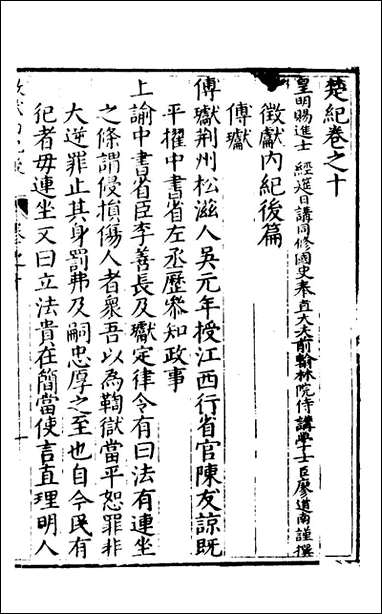 楚紀卷之十
皇明賜進士 經筵日講同修國史奉直大夫前翰林院侍講學士臣廖道南謹撰
徵獻內紀後篇
傅瓛
傅瓛荆州松滋人吳元年授江西行省官陳友諒既
平擢中書省左丞歷參知政事
上諭中書省臣李善長及瓛定律令有曰法有連坐
之條謂侵損傷人者衆吾以為鞫獄當平恕罪非
大逆罪止其身罰弗及嗣忠厚之至也自今民有
犯者毋連坐又曰立法貴在簡當使言直理明人